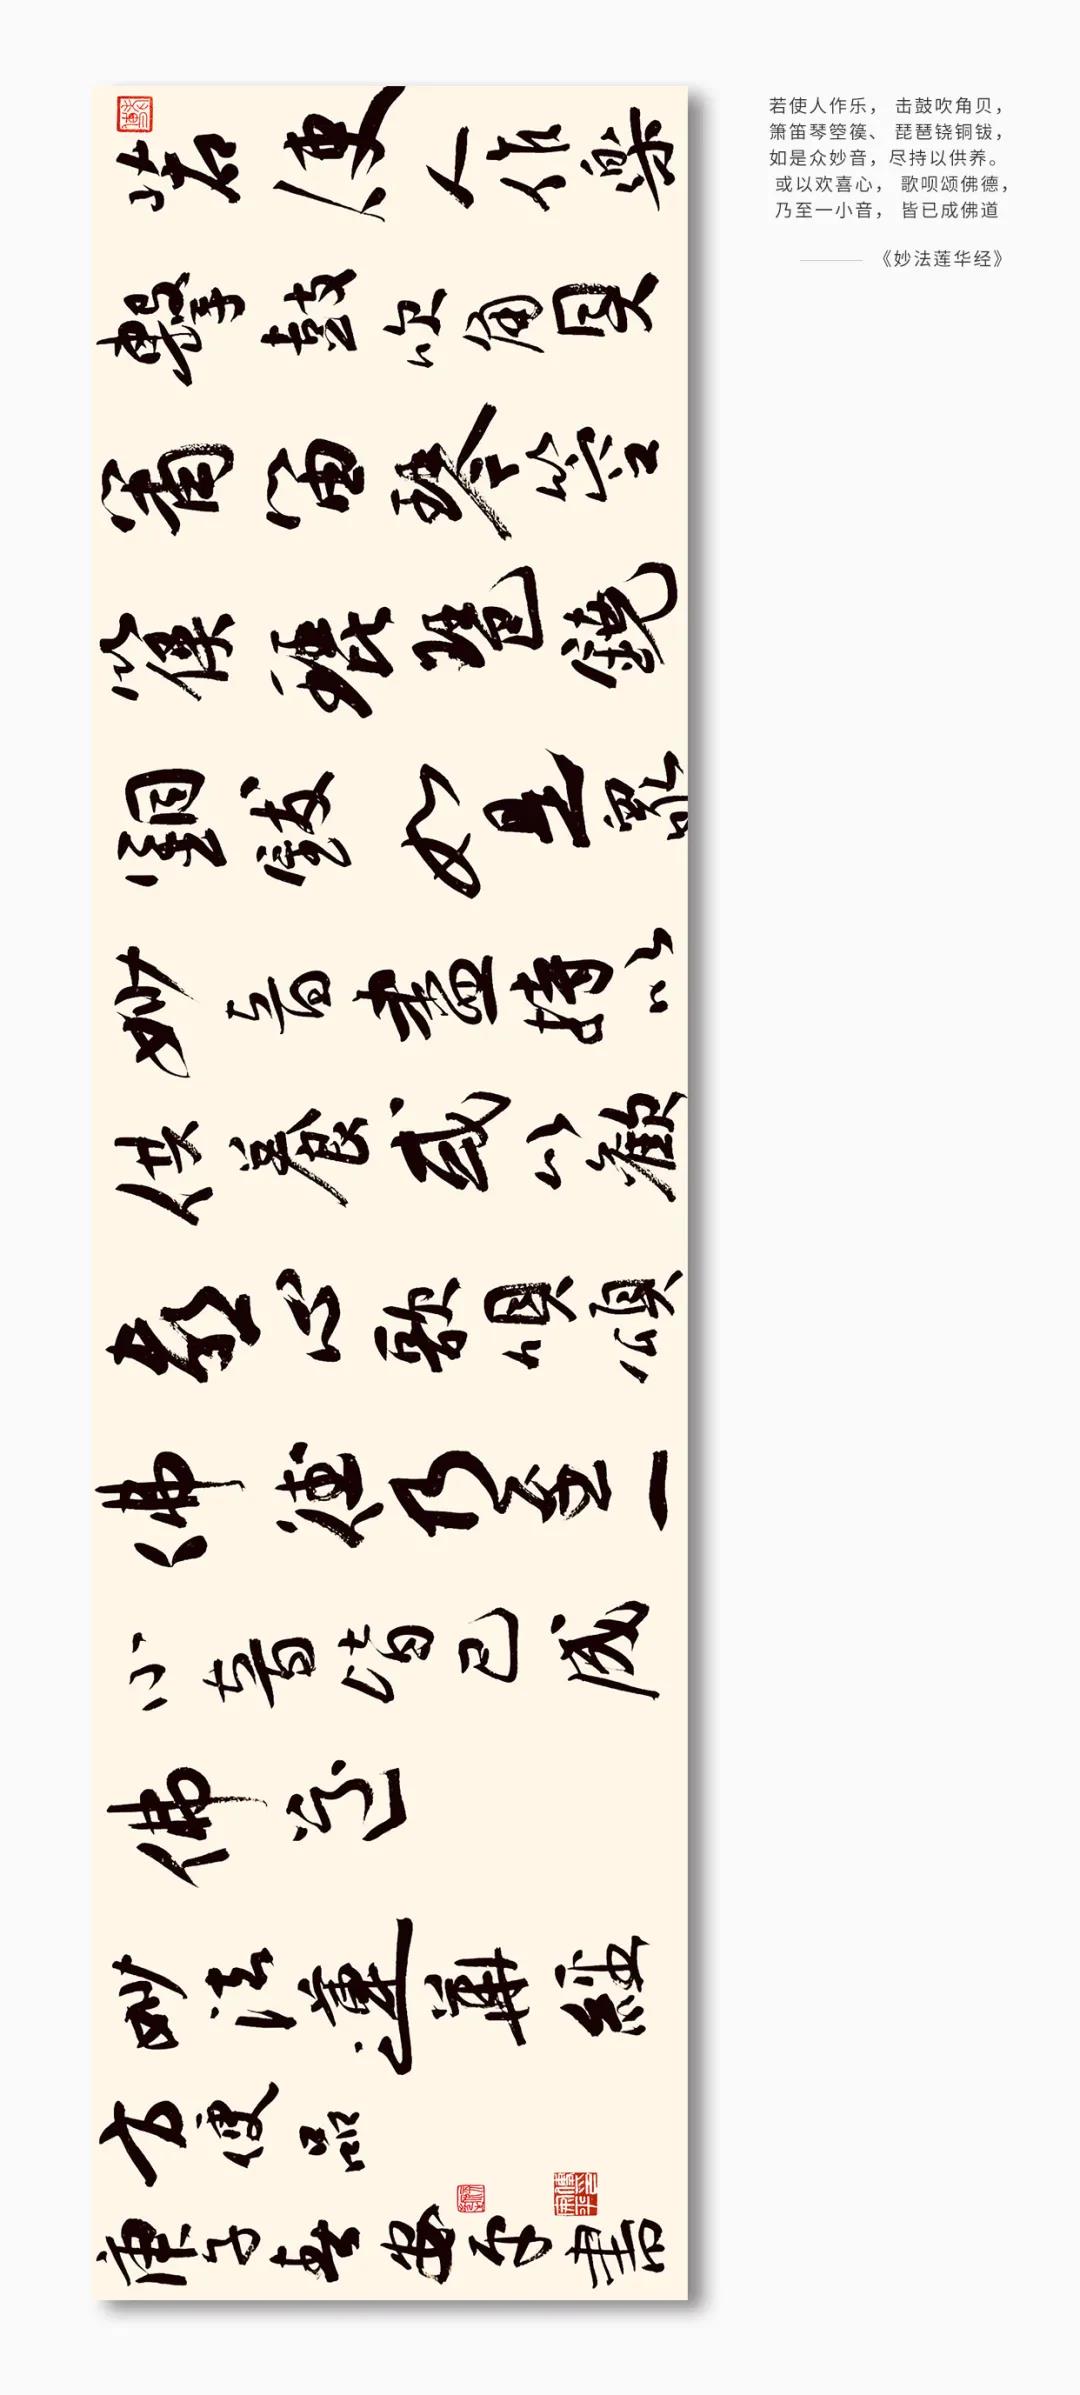 若使人作樂
擊鼓吹角貝
簫笛琴箜
篌琵琶鐃
銅鈸如是眾
妙音盡持以
供養或以歡
喜心歌唄頌
佛德乃至一
小音皆已成
佛道
妙法蓮華經
方便品
庚子春 書
若使人作乐， 击鼓吹角贝，
箫笛琴箜篌、 琵琶铙铜钹，
如是众妙音，尽持以供养。
或以欢喜心， 歌呗颂佛德，
乃至一小音， 皆已成佛道
《妙法莲华经》